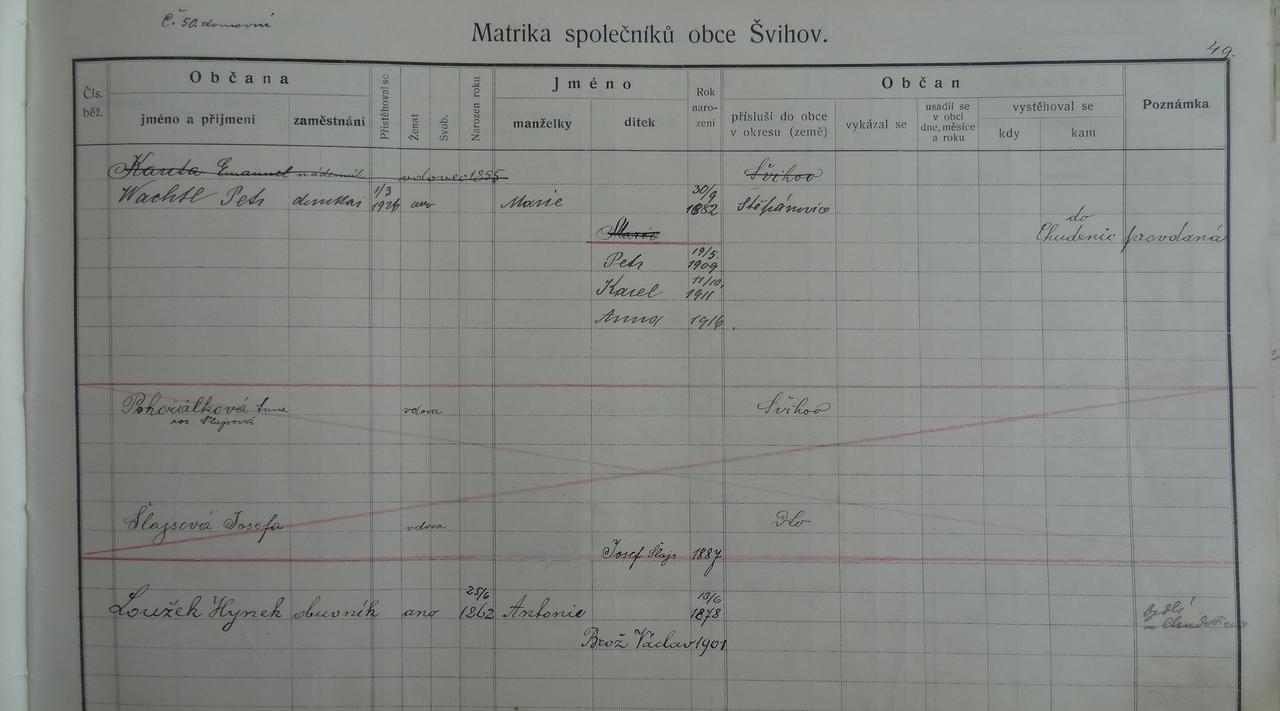 Č 50. domovní
Matrika společníků obce Švihov.
49.
Čís. běž.
Občana
jméno a příjmení
zaměstnání
Přistěhoval se
Ženat
Svob.
Narozen roku
Jméno
manželky
dítek
Rok naro- zení
Občan
přísluší do obce v okresu (země)
vykázal se
usadil se v obci dne, měsíce a roku
vystěhoval se
kdy
kam
Poznámka
Kauta Emanuel nádenník vdovec 1855 Švihov
Wachtl Petr 1/3 1926 ano Marie 30/9 1882 Štěpánovice
Marie do Chudenic provdaná
Petr 19/5. 1909
Karel 11/10. 1911
Anna 1916.
Pohořálková Anna vdova Švihov
roz Šlajsová
Šlajsová Josefa vdova Dto
Josef Šlajs 1887
Loužek Hynek obuvník ano 25/6 1862 Antonie 13/6 1878 bydlí
Brož Václav 1901